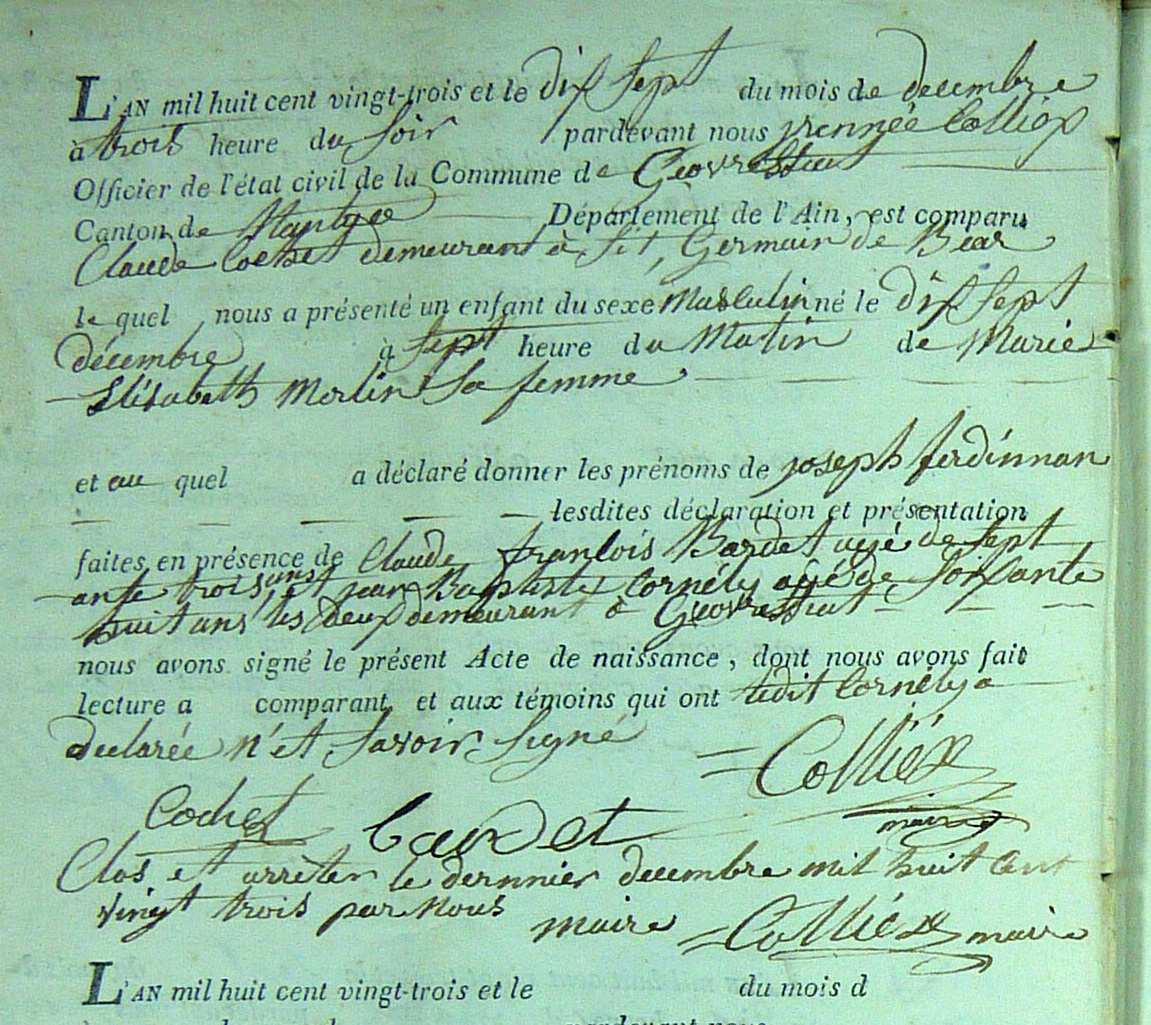 L'AN mil huit cent vingt-trois et le dix sept du mois de decembre
à trois heure du soir pardevant nous rennée Colliex
Officier de l'état civil de la Commune de Géovressiat
Canton de Nantua Département de l'Ain, est comparu
Claude Cochet demeurant à St, Germain de Bear
le quel nous a présenté un enfant du sexe Masculin né le dix sept
décembre à sept heure du Matin de Marie
Elisabeth Merlin sa femme
et au quel a déclaré donner les prénoms de joseph ferdinnan
lesdites déclaration et présentation
faites en présence de Claude françois Bardet agé de sept
ante trois ans et jean Baptiste Cornély agé de soixante
huit ans les deux demeurant à Géovressiat
nous avons signé le présent Acte de naissance, dont nous avons fait
lecture a comparant, et aux témoins qui ont ledit Cornély a
declarée n'et savoir signé
Colliéx
maire
Cochet bardet
Clos et arrêter le dernnier decembre mil huit cent
vingt trois par nous maire Colliéx maire
L'AN mil huit cent vingt-trois et le du mois d